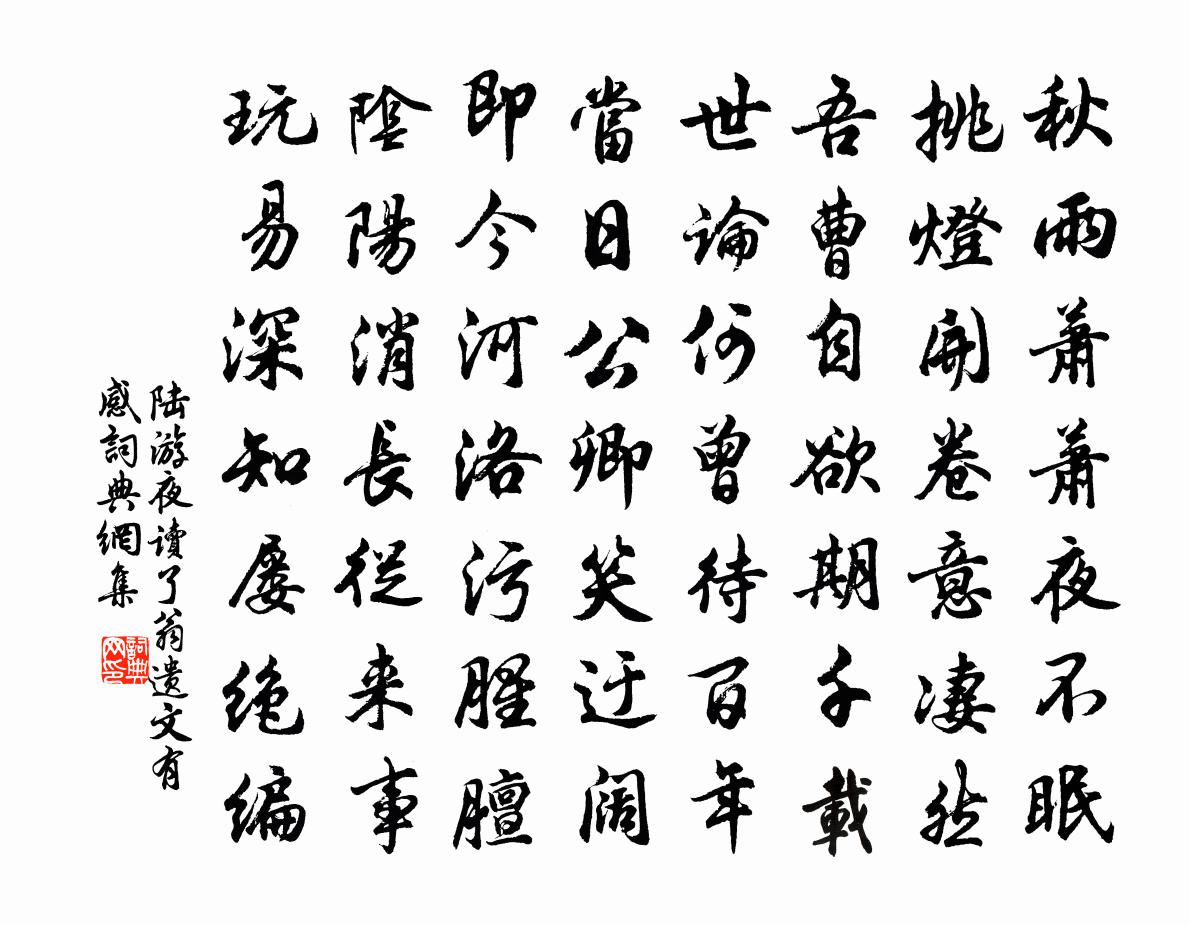 秋雨蕭蕭夜不眠
挑燈開卷意凄然
吾曹自欲期千載
世論何曾待百年
當日公卿笑迂阔
即今河洛污腥膻
陰陽消長從来事
玩易深知屡绝编
陆游夜讀了翁遗文有
感詞典網集
詞典
网印